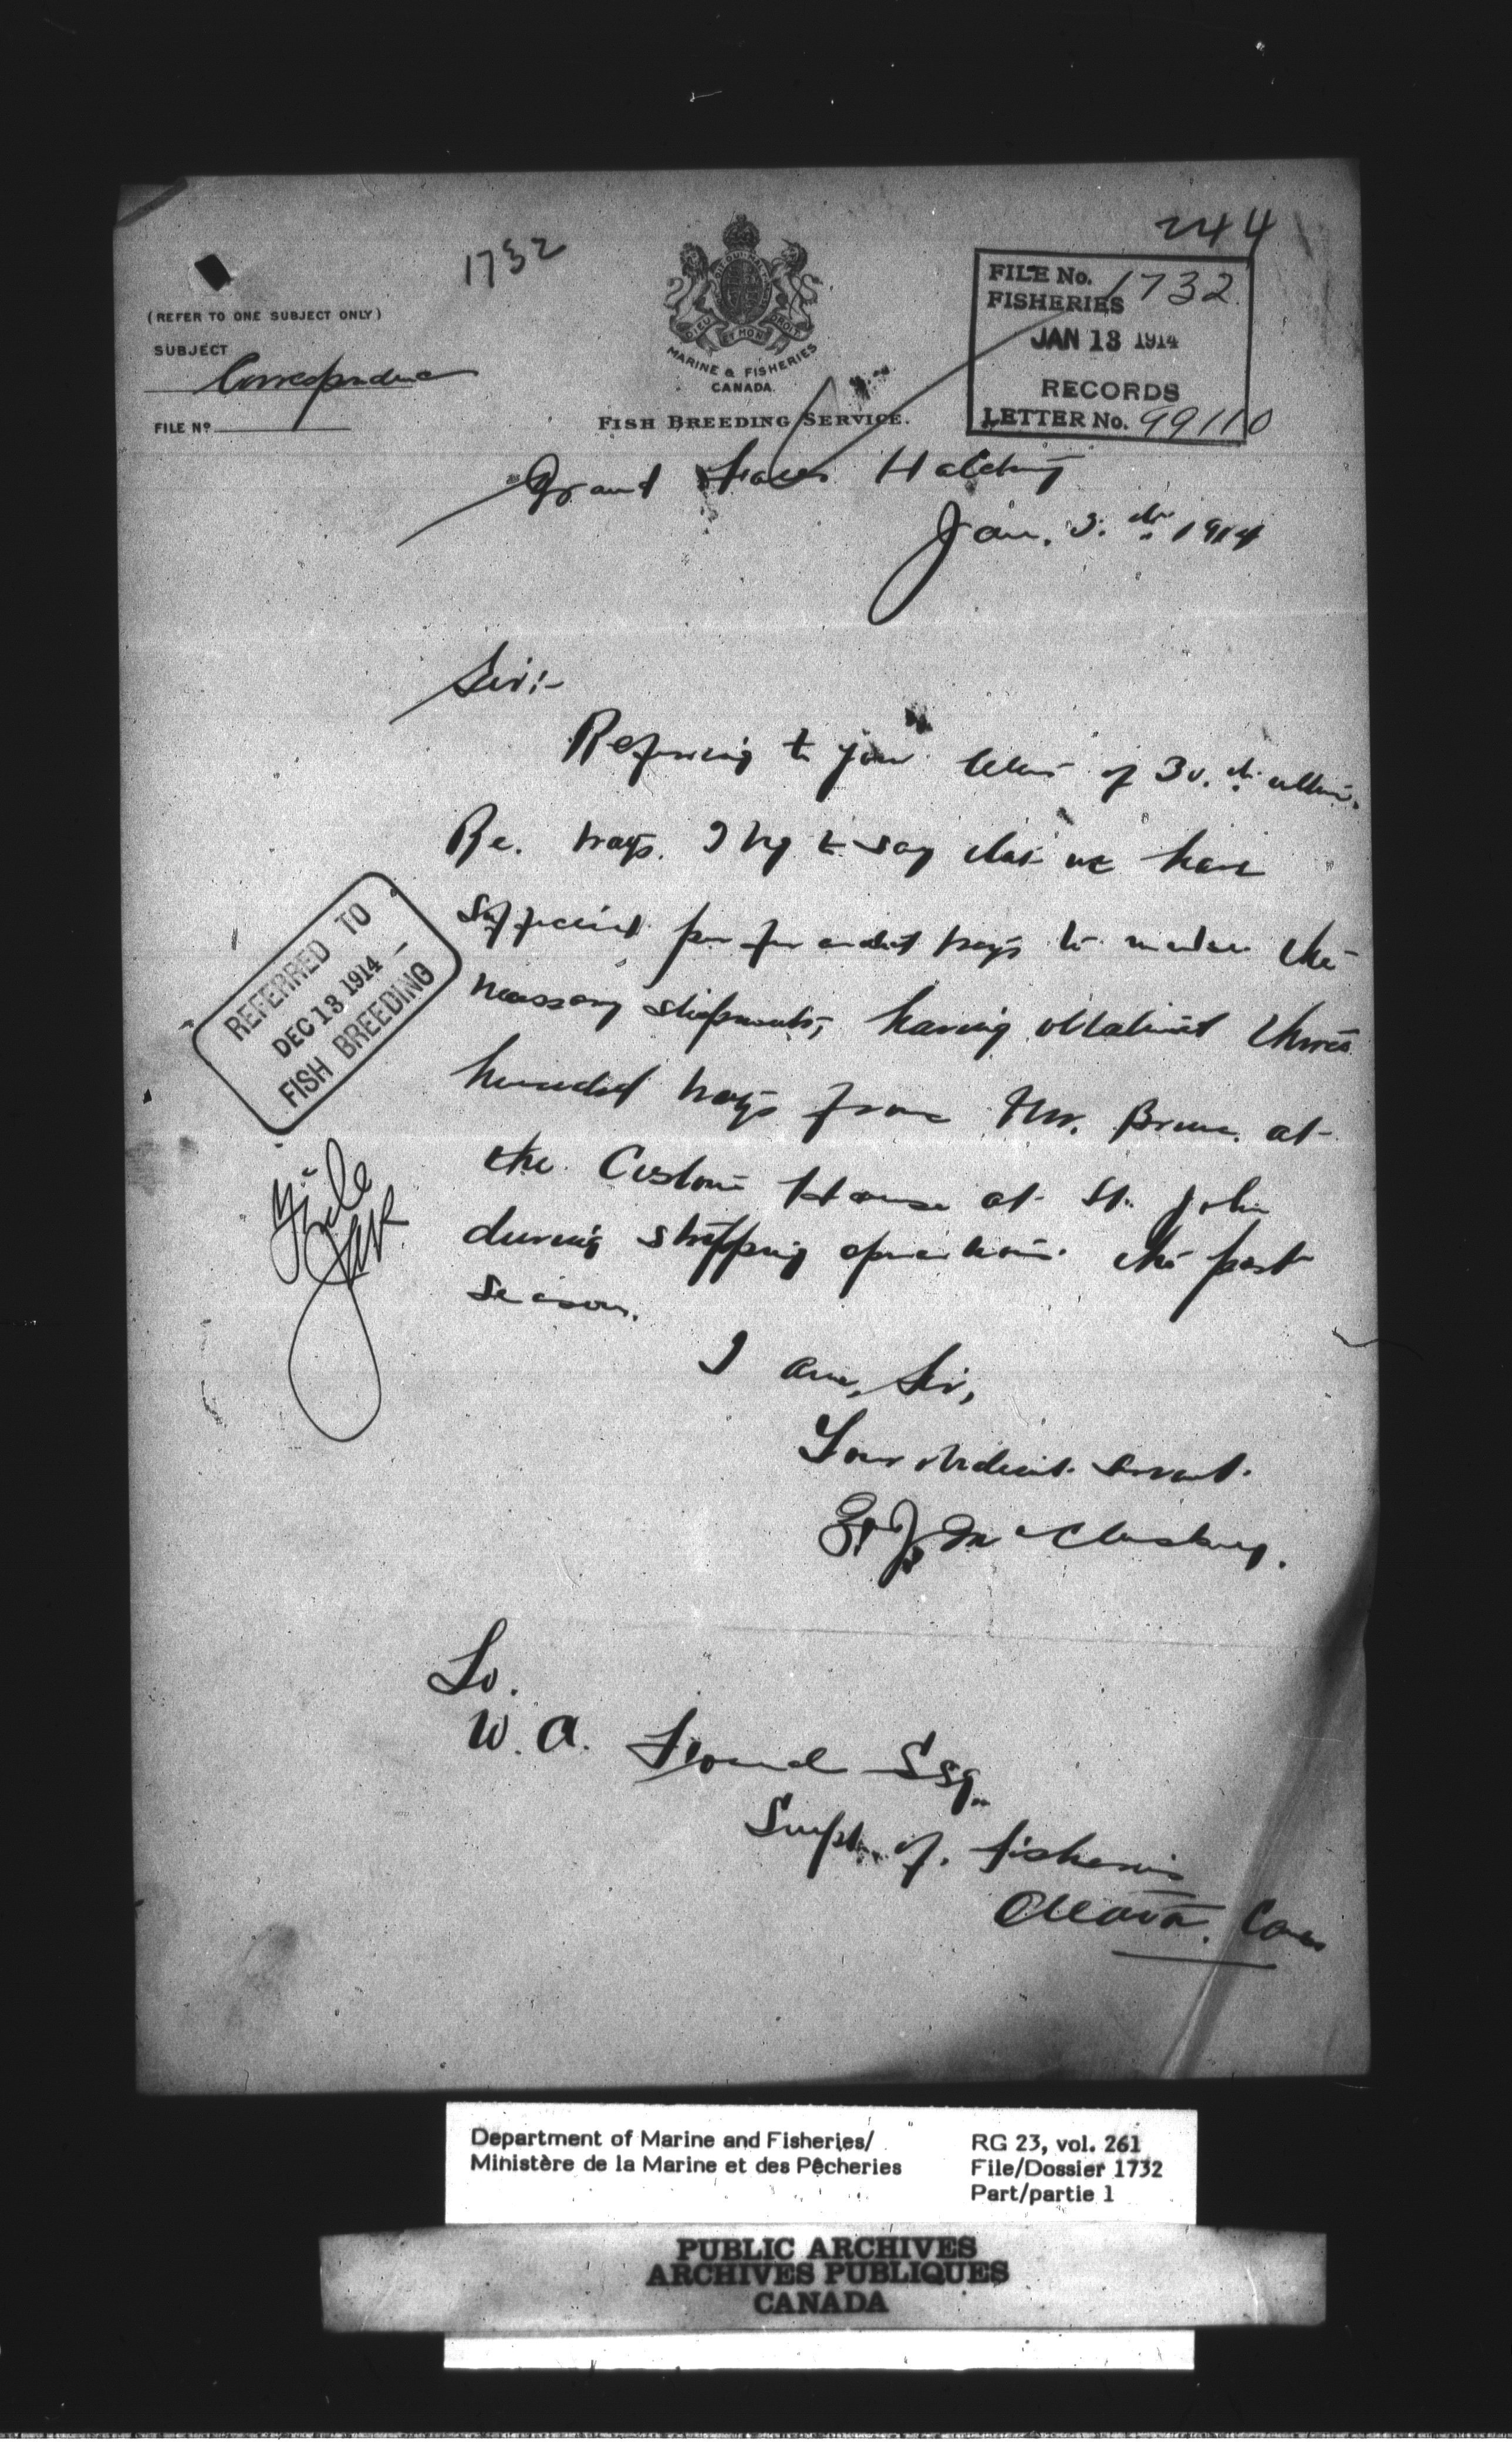 244
1732
FILE No. 1732
FISHERIES
JAN 13 1914
RECORDS
LETTER No. 99110
(REFER TO ONE SUBJECT ONLY)
SUBJECT
Correspondence
FILE No
DIEU ET MON DROIT
MARINE & FISHERIES
CANADA.
FISH BREEDING SERVICE.
Grand Falls Hatchery
Jan. 3rd 1914
Sir:-
Referring to your letter of 30.th ultimo.
Re. trays. I beg to say that we have
sufficient trays to make the
necessary shipments, having obtained three
hundred trays from Mr. at
the Custom House at St. John
during stripping operations the past
season.
I am, Sir,
Your obedient servant.
McCluskey.
REFERRED TO
DEC 13 1914
FISH BREEDING
File
To.
W. A. Found Esq.
Supt. of. Fisheries
Ottawa. Can
Department of Marine and Fisheries/
Ministère de la Marine et des Pêcheries
RG 23, vol. 261
File/Dossier 1732
Part/partie 1
PUBLIC ARCHIVES
ARCHIVES PUBLIQUES
CANADA